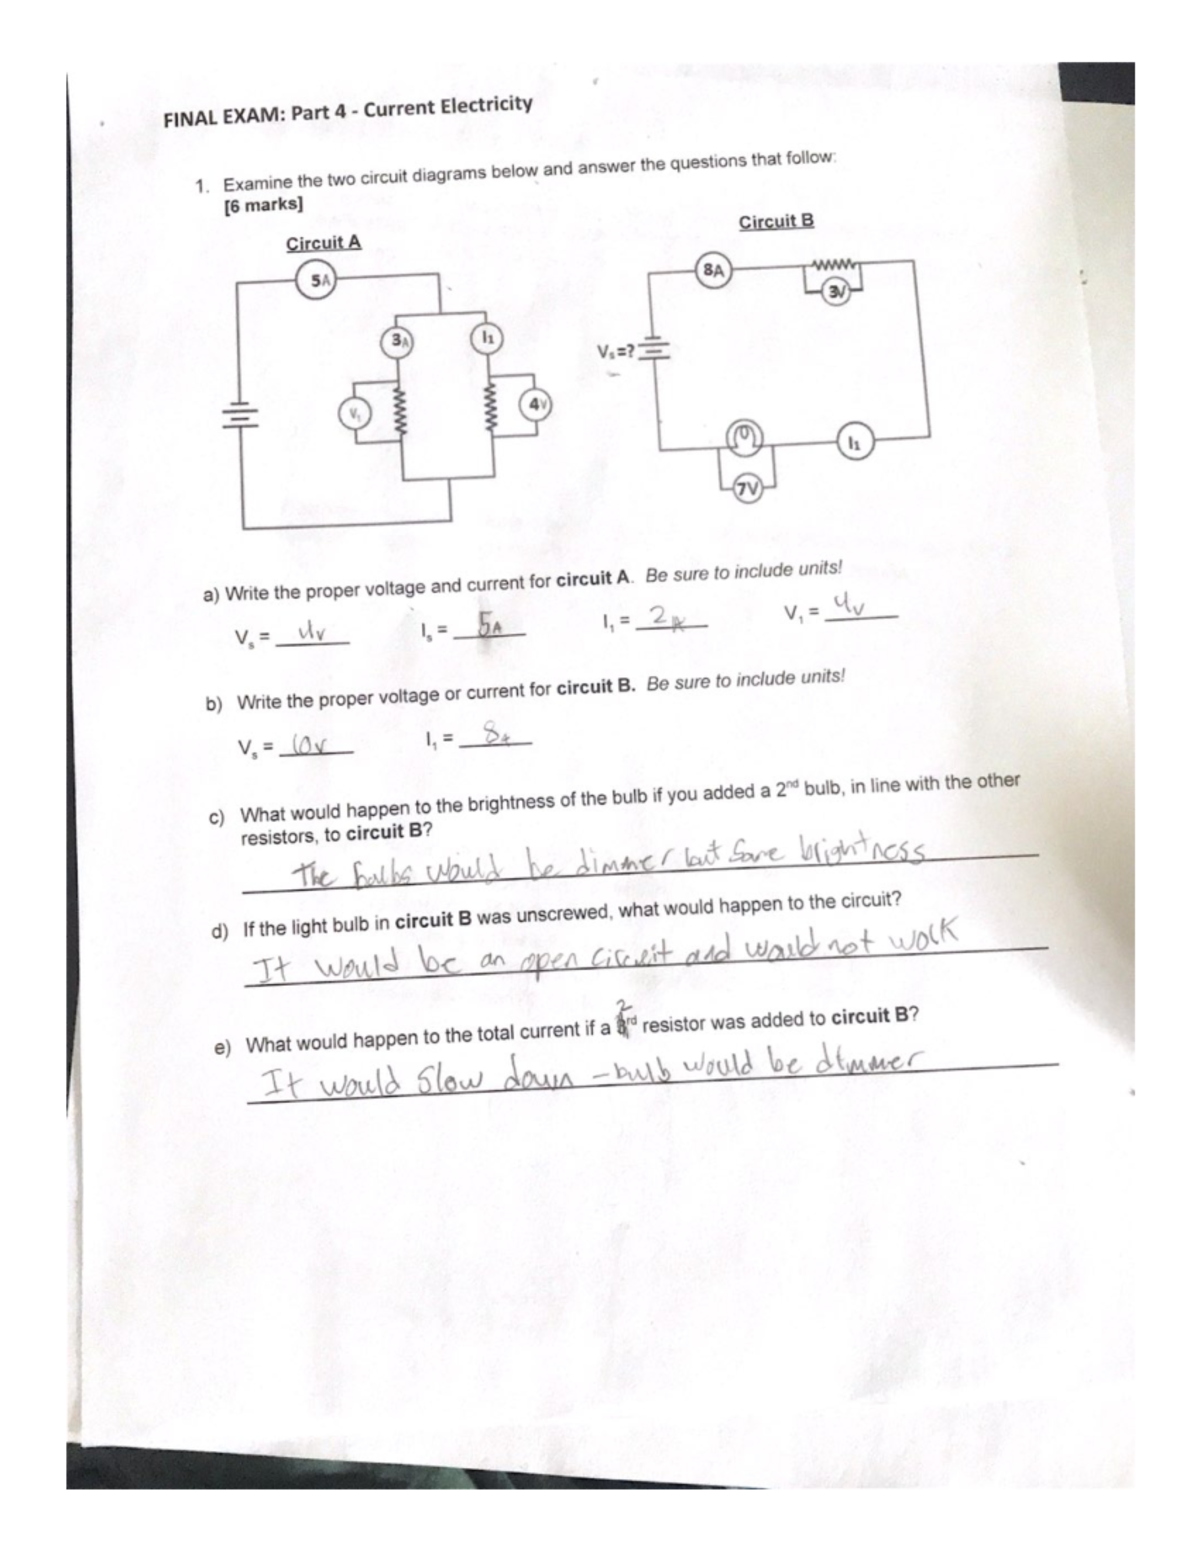 FINAL EXAM: Part 4 - Current Electricity
1. Examine the two circuit diagrams below and answer the questions that follow:
[6 marks]
Circuit A
Circuit B
5A
3A
I1
V1
4V
8A
3V
Vs=?
I1
7V
a) Write the proper voltage and current for circuit A. Be sure to include units!
Vs = 4v Is = 5A I1 = 2A V1 = 4v
b) Write the proper voltage or current for circuit B. Be sure to include units!
Vs = 10v I1 = 8A
c) What would happen to the brightness of the bulb if you added a 2nd bulb, in line with the other
resistors, to circuit B?
The bulbs would be dimmer but same brightness
d) If the light bulb in circuit B was unscrewed, what would happen to the circuit?
It would be an open circuit and would not work
2
e) What would happen to the total current if a 3rd resistor was added to circuit B?
It would slow down - bulb would be dimmer